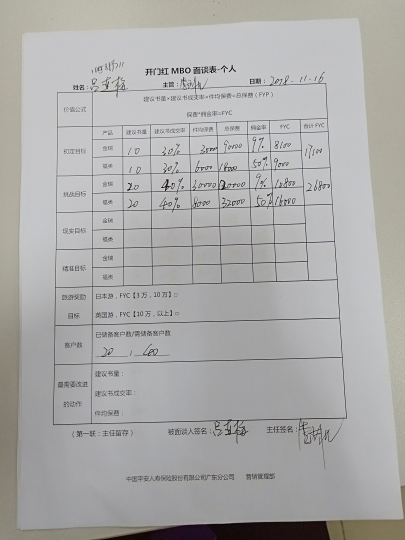 开门红 MBO 面谈表-个人
姓名： 主管： 日期：2018-11-16
价值公式 建议书量*建议书成交率*件均保费=总保费（FYP）
保费*佣金率=FYC
产品 建议书量 建议书成交率 件均保费 总保费 佣金率 FYC 合计 FYC
初定目标 金瑞 10 30% 9% 8100 17100
福类 10 30% 6000 18000 50% 9000
挑战目标 金瑞 20 40% 9% 10800 26800
福类 20 40% 8000 32000 50% 16000
现实目标 金瑞
福类
精准目标 金瑞
福类
旅游奖励 日本游，FYC【3 万，10 万】□
目标 英国游，FYC【10 万，以上】□
客户数 已储备客户数/需储备客户数
20 ,
最需要改进 建议书量：
的动作 建议书成交率：
件均保费：
（第一联：主任留存） 被面谈人签名： 主任签名：
中国平安人寿保险股份有限公司广东分公司 营销管理部